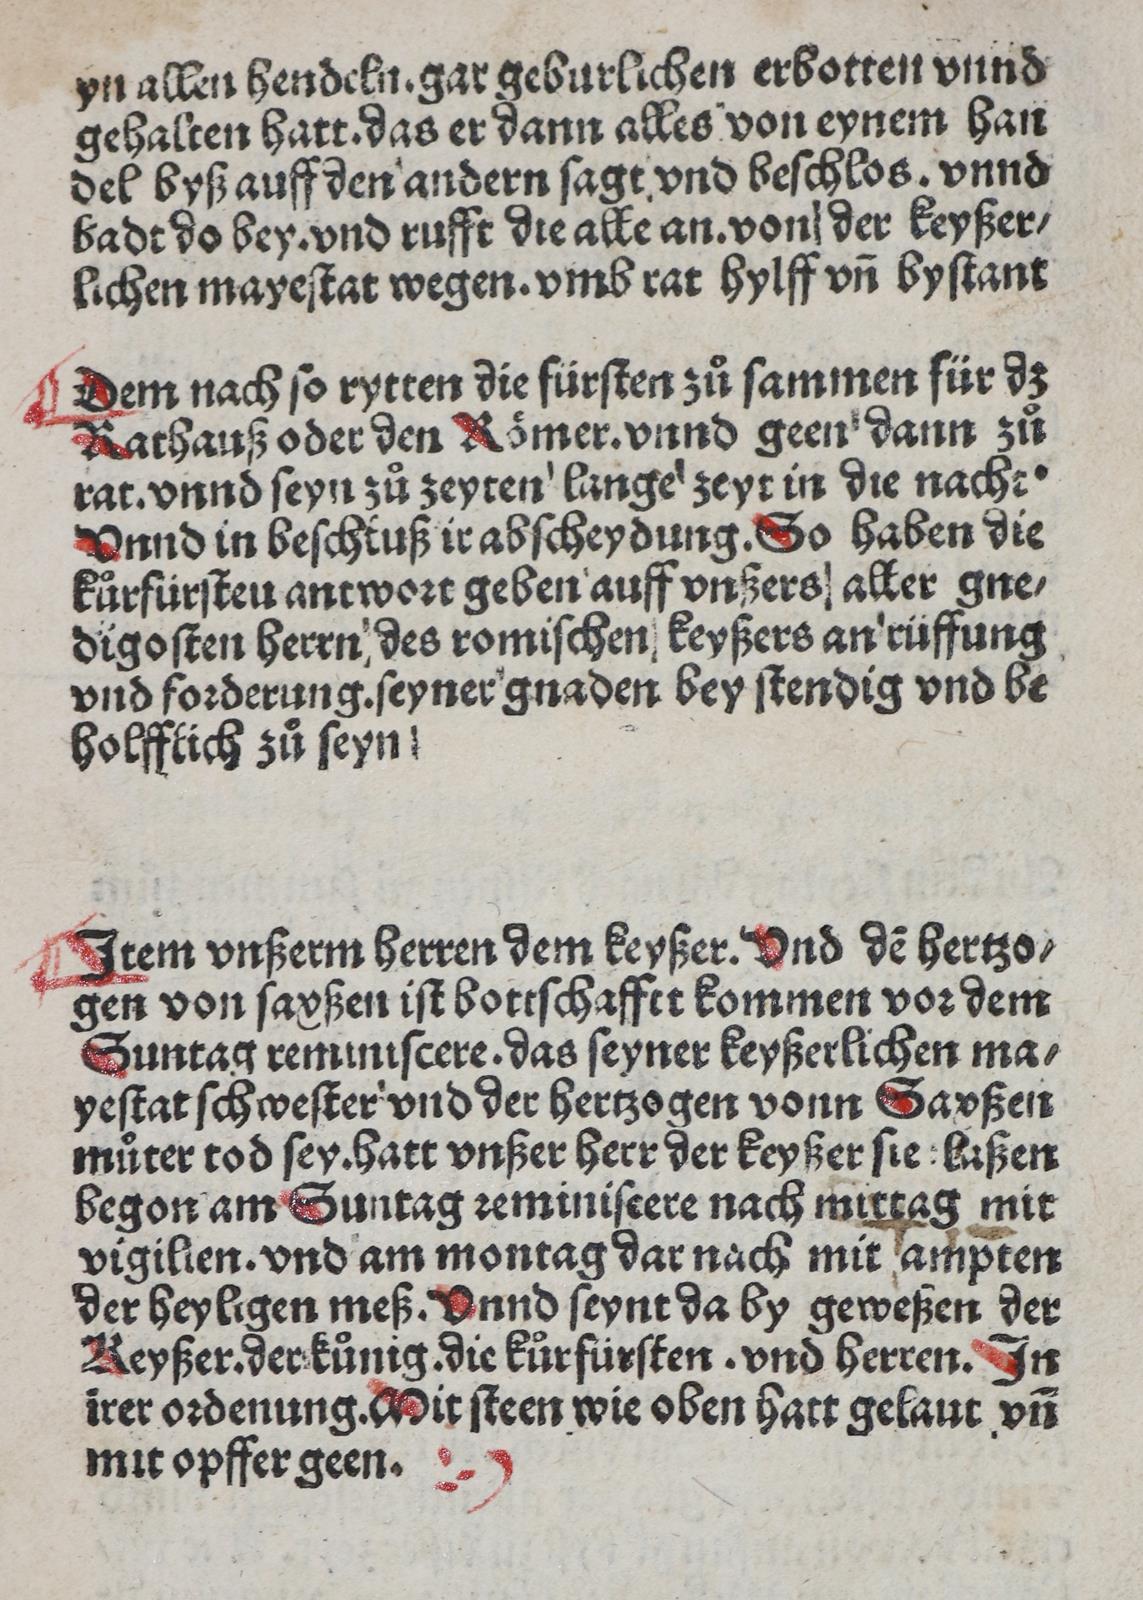 yn allen hendeln.gar geburlichen erbotten vnnd
gehalten hatt.das er dann alles von eynem han
del byß auff den andern sagt vnd beschlos. vnnd
badt do bey.vnd rufft die alle an.von der keyßer/
lichen mayestat wegen.vmb rat hylff vn̄ bystant
Dem nach so rytten die fürsten zů sammen für dz
Rathauß oder den Römer.vnnd geen dann zů
rat.vnnd seyn zů zeyten lange zeyt in die nacht.
Vnnd in beschluß ir abscheydung.So haben die
kůrfürsten antwort geben auff vnßers aller gne/
digosten herrn des romischen keyßers an rüffung
vnd forderung.seyner gnaden bey stendig vnd be
holfflich zů seyn
Item vnßerm herren dem keyßer. Vnd dē hertzo/
gen von saxßen ist bottschafftt kommen vor dem
Suntag reminiscere.das seyner keyßerlichen ma/
yestat schwester vnd der hertzogen vonn Saxßen
můter tod sey.hatt vnßer herr der keyßer sie laßen
begon am Suntag reminiscere nach mittag mit
vigilien.vnd am montag dar nach mit ampten
der heyligen meß. Vnnd seynt da by geweßen der
Keyßer.der kůnig.die kůrfürsten .vnd herren. In
irer ordenung.Mit steen wie oben hatt gelaut vn̄
mit opffer geen.